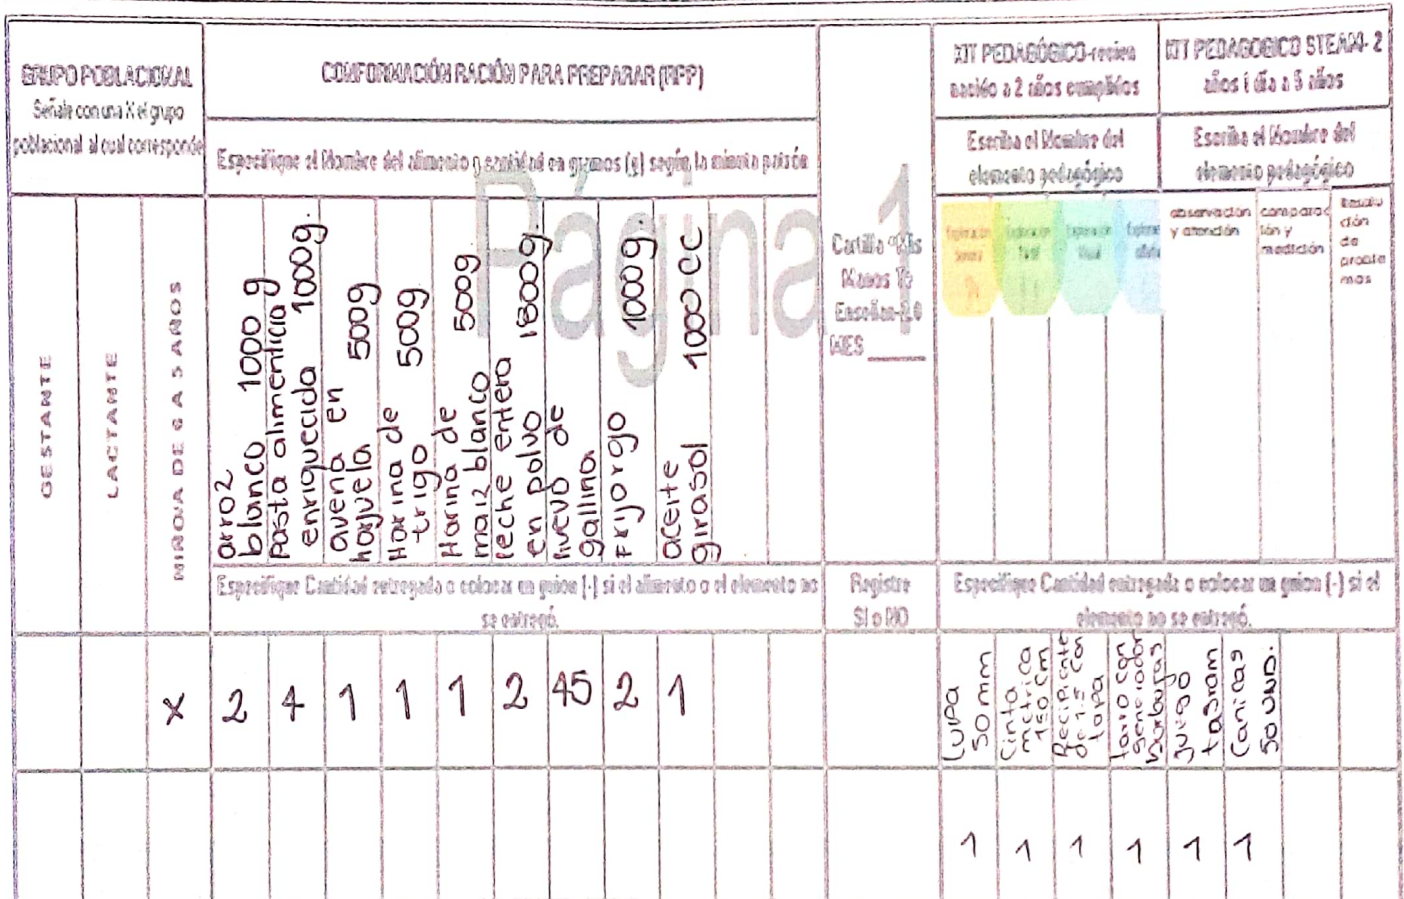 GRUPO POBLACIONAL
Señale con una X el grupo
poblacional al cual corresponde
CONFORMACIÓN RACIÓN PARA PREPARAR (RPP)
Especifique el Nombre del alimento y cantidad en gramos (g) según la minuta patrón
KIT PEDAGÓGICO-recien
nacido a 2 años cumplidos
Escriba el Nombre del
elemento pedagógico
KIT PEDAGOGICO STEAM- 2
años 1 día a 5 años
Escriba el Nombre del
elemento pedagógico
Página 1
GESTANTE
LACTANTE
NIÑO/A DE 6 A 5 AÑOS
arroz
blanco 1000 g
Pasta alimenticia
enriquecida 1000g.
avena en
hojuela 500g
Harina de
trigo 500g
Harina de
maiz blanco 500g
leche entera
en polvo 1800g.
huevo de
gallina
Frijol rojo 1000g.
aceite
girasol 1000 cc
Cartilla "Mis
Manos Te
Enseñan-2.0
MES ______
observación
y atención
comparac
ión y
medición
Resolu
ción
de
proble
mas
Especifique Cantidad entregada o colocar un guion (-) si el alimento o el elemento no
se entregó.
Registre
SI o NO
Especifique Cantidad entregada o colocar un guion (-) si el
elemento no se entregó.
X 2 4 1 1 1 2 45 2 1
Lupa
50 mm
Cinta
metrica
150 cm
Recipiente
de 1.5 con
tapa
tarro con
generador
burbujas
juego
tasgram
Canicas
50 UND.
1 1 1 1 1 1